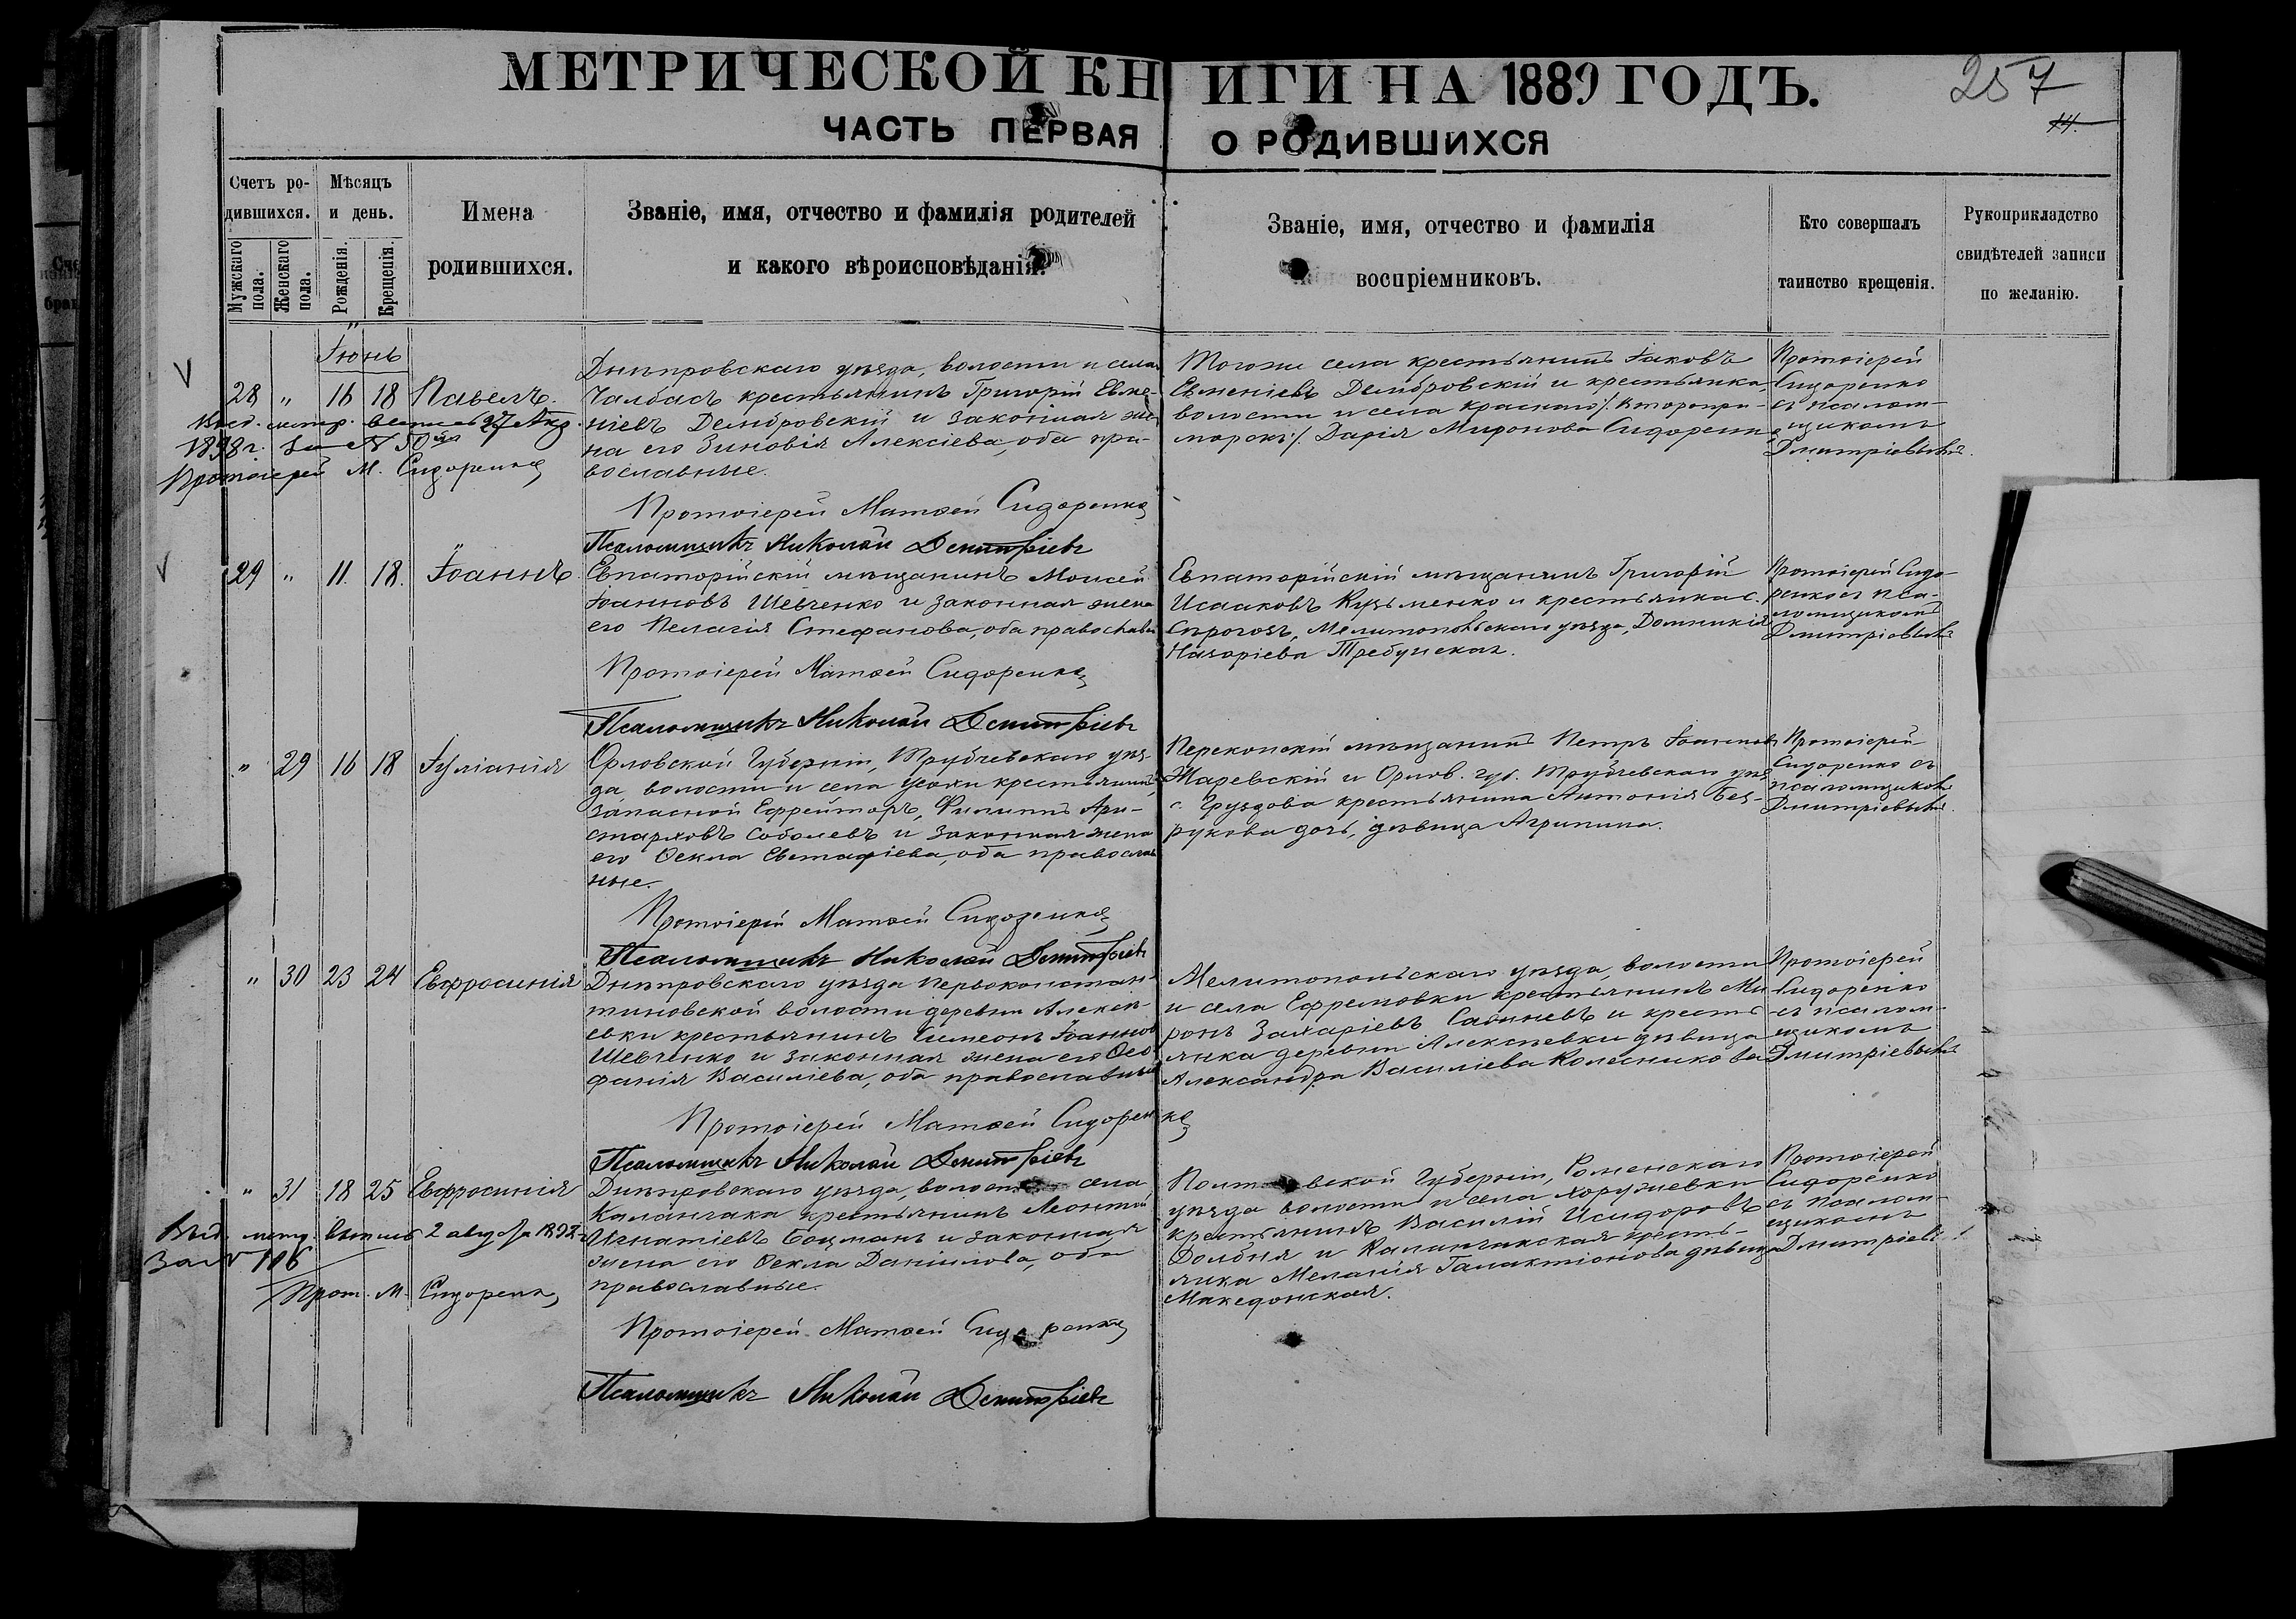 МЕТРИЧЕСКОЙ КНИГИ НА 1889 ГОДЪ.
257
14.
ЧАСТЬ ПЕРВАЯ О РОДИВШИХСЯ
Счетъ ро-
дившихся.
Мужскаго пола.
Женскаго пола.
Мѣсяцъ
и день.
Рожденія.
Крещенія.
Имена
родившихся.
Званіе, имя, отчество и фамилія родителей
и какого вѣроисповѣданія.
Званіе, имя, отчество и фамилія
воспріемниковъ.
Кто совершалъ
таинство крещенія.
Рукоприкладство
свидѣтелей записи
по желанію.
Іюнь
28 " 16 18 Павелъ.
Выд. метр. выпись 27 Апр.
1898 г. за № 50
Протоіерей М. Сидоренко
Днѣпровскаго уѣзда, волости и села
Чалбасъ крестьянинъ Григорій Евме-
ніевъ Домбровскій и законная же-
на его Зиновія Алексіева, оба пра-
вославные.
Протоіерей Матѳей Сидоренко
Псаломщикъ Николай Дмитріевъ
Тогоже села крестьянинъ Іаковъ
Евменіевъ Домбровскій и крестьянка
волости и села Краснаго
Дарія Миронова Сидоренко
Протоіерей
Сидоренко
съ псалом-
щикомъ
Дмитріевымъ.
29 " 11. 18. Іоаннъ.
Евпаторійскій мѣщанинъ Моисей
Іоанновъ Шевченко и законная жена
его Пелагія Стефанова, оба православн
Протоіерей Матѳей Сидоренко
Псаломщикъ Николай Дмитріевъ
Евпаторійскій мѣщанинъ Григорій
Исааковъ Кузьменко и крестьянка с.
Сѣрогозъ, Мелитопольскаго уѣзда, Домникія
Назаріева Требунская.
Протоіерей Сидо-
ренко съ пса-
ломщикомъ
Дмитріевымъ
" 29 16 18 Іуліанія
Орловской Губерніи, Трубчевскаго уѣз-
да волости и села крестьянинъ,
запасной Ефрейторъ, Филиппъ Ари-
старховъ Соболевъ и законная жена
его Ѳекла Евстафіева, оба православ
ные.
Протоіерей Матѳей Сидоренко
Псаломщикъ Николай Дмитріевъ
Перекопскій мѣщанинъ Петръ Іоанновъ
Жаревскій и Орлов. губ. Трубчевскаго уѣз.
с. Груздова крестьянина Антонія Без-
рукова дочь, дѣвица Агрипина.
Протоіерей
Сидоренко съ
псаломщикомъ
Дмитріевымъ.
" 30 23 24 Евфросинія
Днѣпровскаго уѣзда Первоконстан-
тиновской волости деревни Алексѣ-
евки крестьянинъ Симеонъ Іоанновъ
Шевченко и законная жена его Ѳео-
фанія Василіева, оба православные
Протоіерей Матѳей Сидоренко
Псаломщикъ Николай Дмитріевъ
Мелитопольскаго уѣзда, волости
и села Ефремовки крестьянинъ Ми
ронъ Захаріевъ Савиневъ и кресть
янка деревни Алексѣевки дѣвица
Александра Василіева Колесникова
Протоіерей
Сидоренко
съ псалом-
щикомъ
Дмитріевымъ
" 31 18 25 Евфросинія
Выд. метр. выпись 2 августа 1892
за № 116
Прот. М. Сидоренко
Днѣпровскаго уѣзда, волости села
Каланчака крестьянинъ Леонтій
Игнатіевъ Боцманъ и законная
жена его Ѳекла Даніилова, оба
православные.
Протоіерей Матѳей Сидоренко
Псаломщикъ Николай Дмитріевъ
Полтавской Губерніи, Роменскаго
уѣзда волости и села Хоружевки
крестьянинъ Василій Исидоровъ
Долбня и Каланчакская кресть-
янка Меланія Галактіонова дѣвица
Македонская.
Протоіерей
Сидоренко
съ псалом-
щикомъ
Дмитріевъ